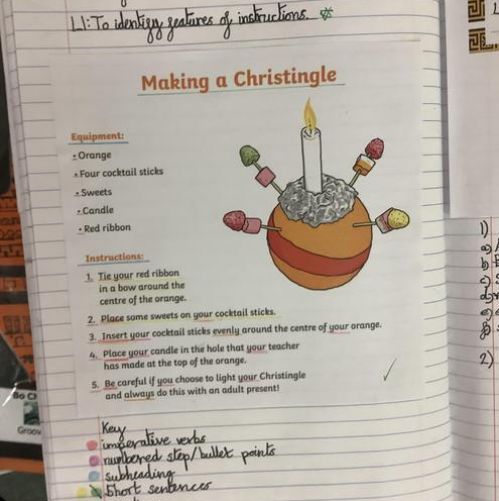 L1: To identify features of instructions.
Making a Christingle
Equipment:
• Orange
• Four cocktail sticks
• Sweets
• Candle
• Red ribbon
Instructions:
1. Tie your red ribbon
in a bow around the
centre of the orange.
2. Place some sweets on your cocktail sticks.
3. Insert your cocktail sticks evenly around the centre of your orange.
4. Place your candle in the hole that your teacher
has made at the top of the orange.
5. Be careful if you choose to light your Christingle
and always do this with an adult present!
Key
imperative verbs
numbered step/bullet points
subheading
Short sentences
1)
2)